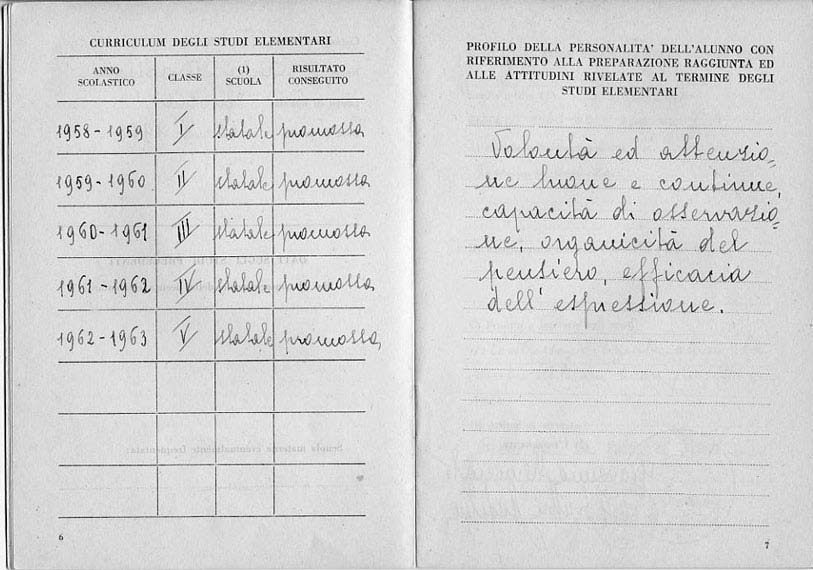 CURRICULUM DEGLI STUDI ELEMENTARI
ANNO SCOLASTICO CLASSE (1) SCUOLA RISULTATO CONSEGUITO
1958-1959 I statale promossa
1959-1960 II statale promossa
1960-1961 III statale promossa
1961-1962 IV statale promossa
1962-1963 V statale promossa
6
PROFILO DELLA PERSONALITA' DELL'ALUNNO CON
RIFERIMENTO ALLA PREPARAZIONE RAGGIUNTA ED
ALLE ATTITUDINI RIVELATE AL TERMINE DEGLI
STUDI ELEMENTARI
Volontà ed attenzio-
ne buone e continue,
capacità di osservazio-
ne, organicità del
pensiero, efficacia
dell'espressione.
7